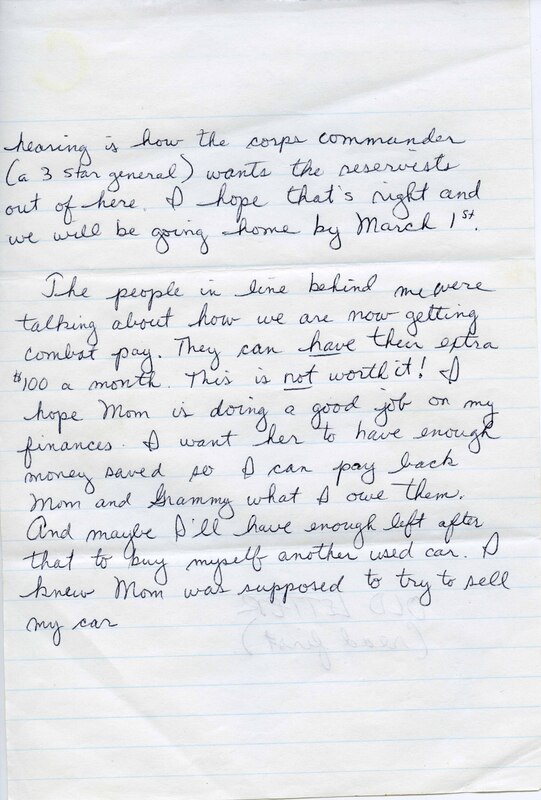 hearing is how the corps commander
(a 3 star general) wants the reservists
out of here. I hope that's right and
we will be going home by March 1st.
The people in line behind me were
talking about how we are now getting
combat pay. They can have their extra
$100 a month. This is not worth it! I
hope Mom is doing a good job on my
finances. I want her to have enough
money saved so I can pay back
Mom and Grammy what I owe them.
And maybe I'll have enough left after
that to buy myself another used car. I
knew Mom was supposed to try to sell
my car
OLD LETTER
(read first)